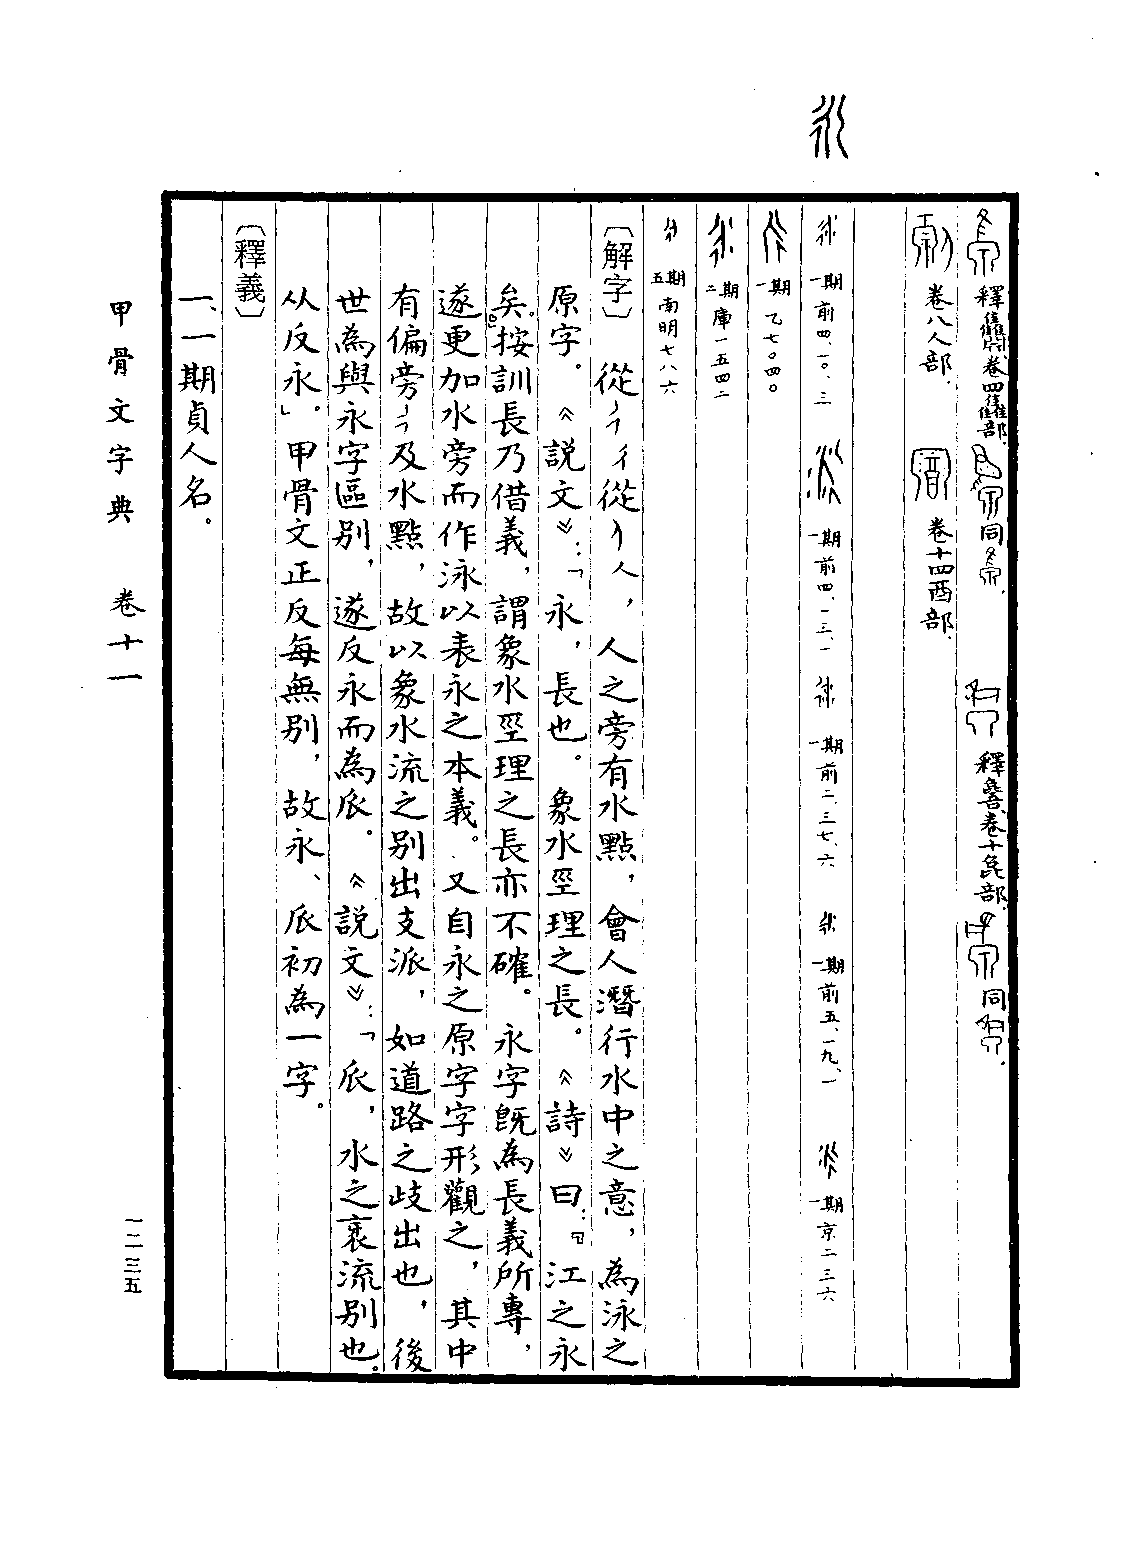 釋 卷四 部 同
釋 卷十 部 同
卷八人部 卷十四酉部
一期前四、一〇、三 一期前四、一三、一 一期前二、三七、六 一期前五、一九、一 一期京二三六
一期乙七〇四〇
二期庫一五四二
五期南明七八六
〔解字〕 從 從 人，人之旁有水點，會人潛行水中之意，為泳之
原字。《說文》：「永，長也。象水巠理之長。《詩》曰：『江之永
矣。』」按訓長乃借義，謂象水巠理之長亦不確。永字既為長義所專，
遂更加水旁而作泳以表永之本義。又自永之原字字形觀之，其中
有偏旁 及水點，故以象水流之別出支派，如道路之歧出也，後
世為與永字區别，遂反永而為𠂢。《說文》：「𠂢，水之衺流別也。
从反永」。甲骨文正反每無別，故永、𠂢初為一字。
〔釋義〕
一、一期貞人名。
甲骨文字典 卷十一
一二三五